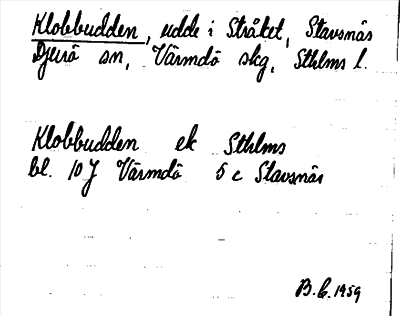 Klobbudden, udde i Stråket, Stavsnäs
Djurö sn, Värmdö skg, Sthlms l.
Klobbudden ek Sthlms
bl. 10J Värmdö 5 c Stavsnäs
B.C. 1959